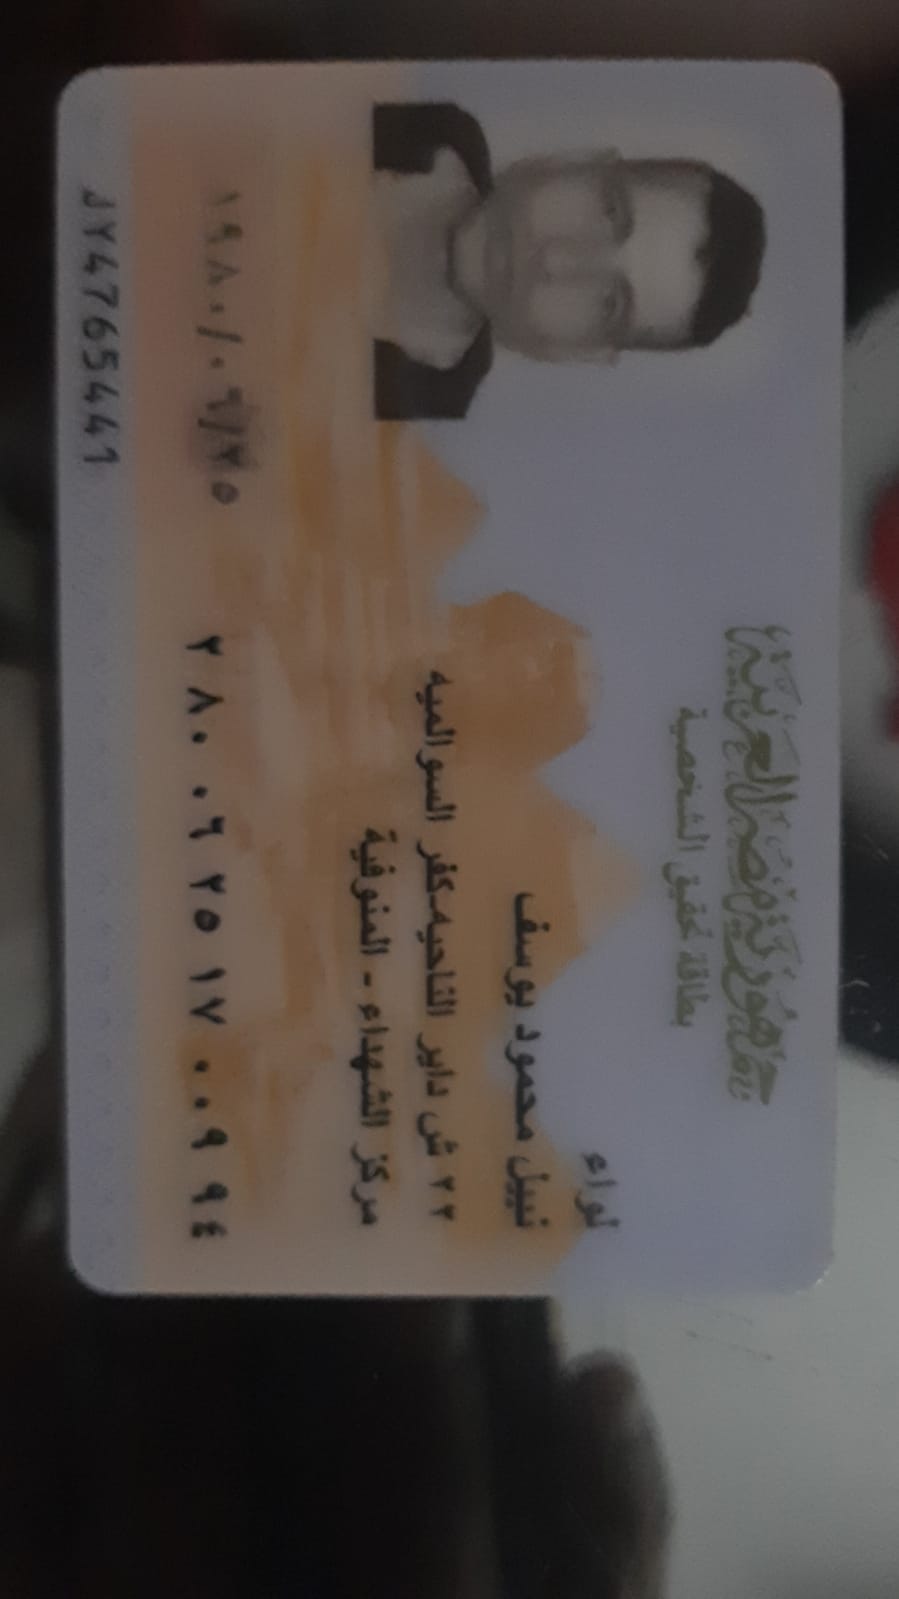 جمهورية مصر العربية
بطاقة تحقيق الشخصية
لواء
نبيل محمود يوسف
٢٢ ش داير الناحيه كفر السوالميه
مركز الشهداء - المنوفية
٢٨٠٠٦٢٥١٧٠٠٩٩٤
١٩٨٠/٠٦/٢٥
JY4765441